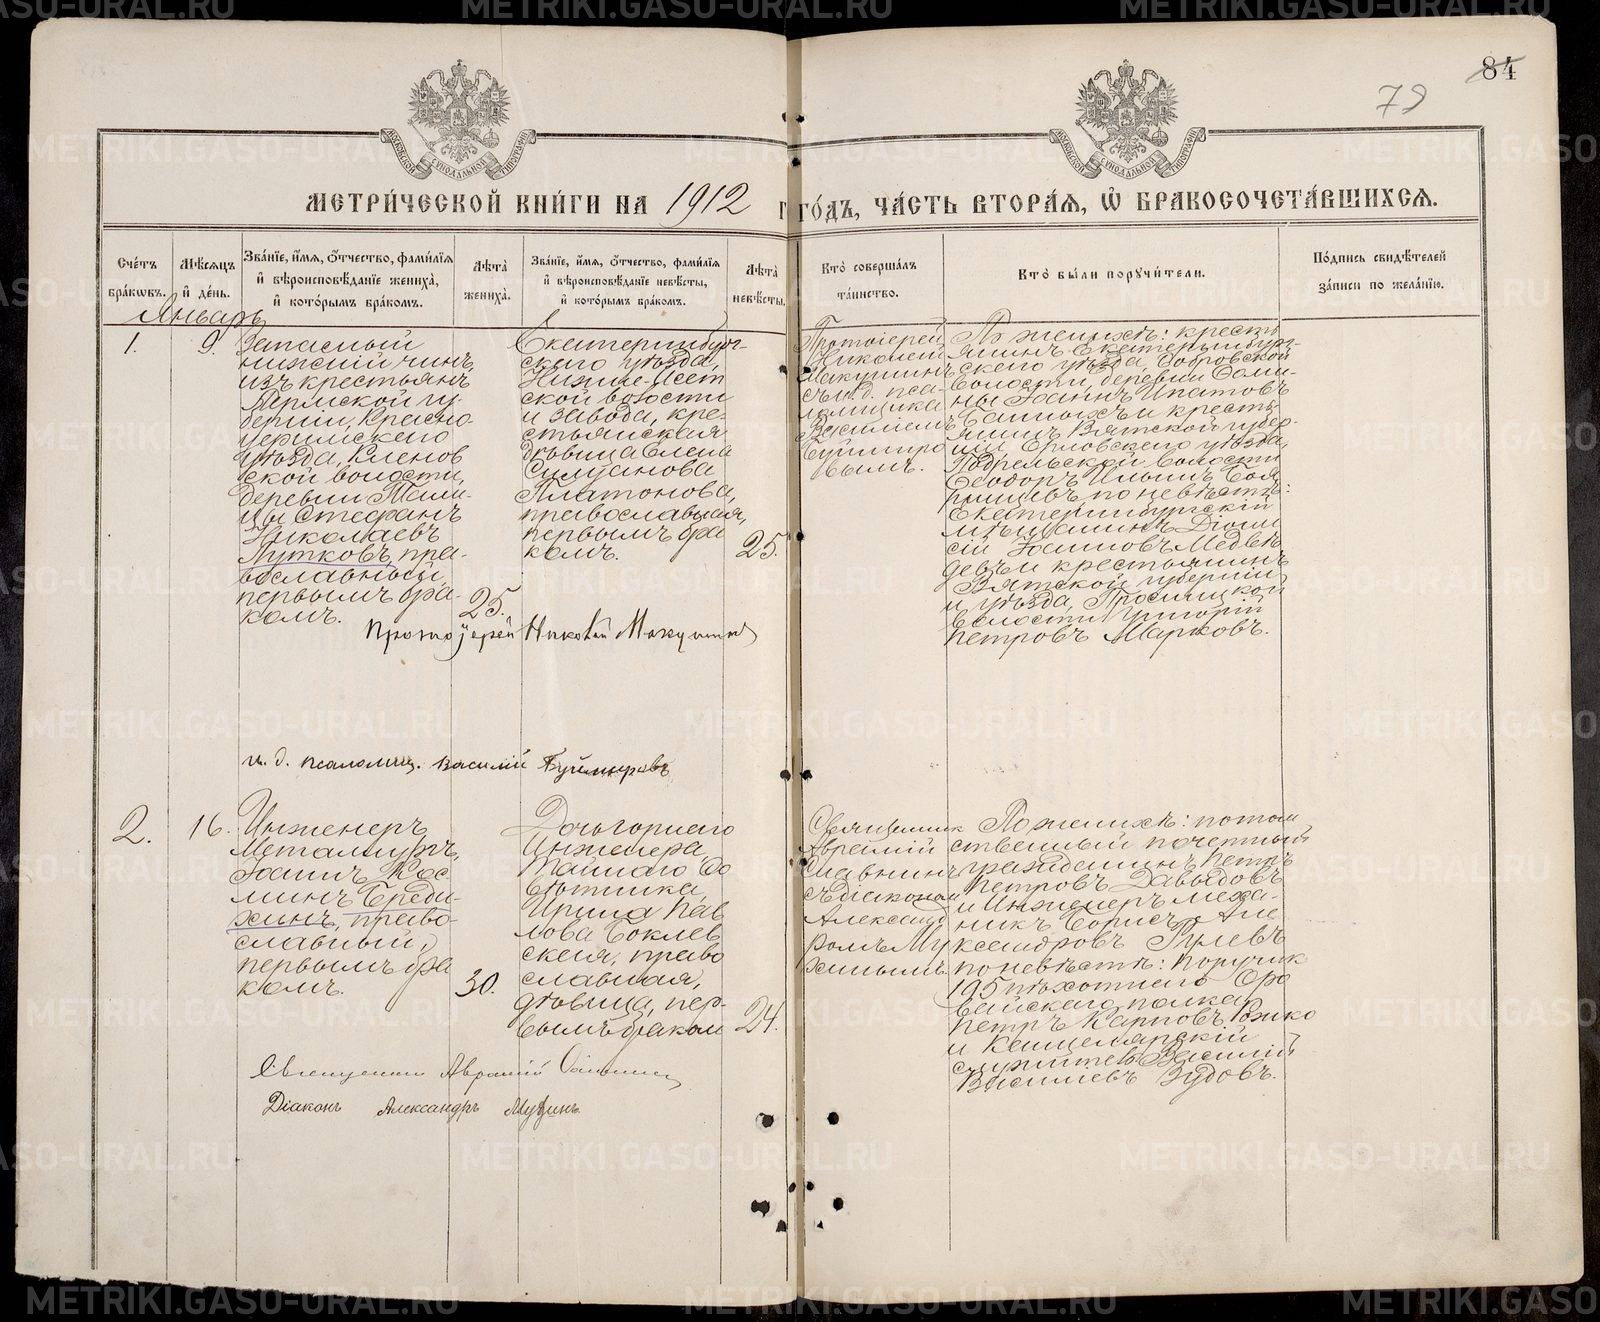 84
79
МЕТРИ́ЧЕСКОЙ КНИ́ГИ НА 1912 ГО́ДЪ, ЧА́СТЬ ВТОРА́Я, Ѡ҆ БРАКОСОЧЕТА́ВШИХСЯ.
Сче́тъ бра́ковъ.
Мѣ́сяцъ и҆ де́нь.
Зва́нїе, и҆́мя, ѻ҆́тчество, фами́лїя и҆ вѣроисповѣ́данїе жениха̀, и҆ кото́рымъ бра́комъ.
Лѣта̀ жениха̀.
Зва́нїе, и҆́мя, ѻ҆́тчество, фами́лїя и҆ вѣроисповѣ́данїе невѣ́сты, и҆ кото́рымъ бра́комъ.
Лѣта̀ невѣ́сты.
Кто̀ соверша́лъ та́инство.
Кто̀ бы́ли порꙋчи́тели.
По́дпись свидѣ́телей за́писи по жела́нїю.
Январь
1.
9.
Запасный
нижній чинъ,
изъ крестьянъ
Пермской гу-
берніи, Красно-
уфимскаго
уѣзда, Кленов
ской волости,
деревни
Стефанъ
Николаевъ
Путковъ, пра-
вославный,
первымъ бра-
комъ.
25.
Екатеринбург-
скаго уѣзда,
Нижне-Исет
ской волости
и завода, кре-
стьянская
дѣвица Елена
Силуанова
Платонова,
православная,
первымъ бра
комъ.
25.
Протоіерей
Николай
Макушинъ
съ и.д. пса-
ломщика
Василіемъ
Буймиро
вымъ.
По женихѣ: кресть
янинъ Екатеринбург-
скаго уѣзда, Бобровской
волости, деревни
Іоаннъ Ипатовъ
и кресть-
янинъ Вятской губер-
ніи Орловскаго уѣзда,
Подрельской волости
Ѳеодоръ Ильинъ
по невѣстѣ:
Екатеринбургскій
мѣщанинъ Діони
сій Іоанновъ Медвѣ
девъ и крестьянинъ
Вятской губерніи
и уѣзда, Просницкой
волости Григорій
Петровъ Марковъ.
Протоіерей Николай Макушинъ
и. д. псаломщ. Василій Буймировъ
2.
16.
Инженеръ
Металлургъ,
Іоаннъ Кос
минъ Бреди-
хинъ, право-
славный,
первымъ бра
комъ.
30.
Дочь горнаго
Инженера
Тайнаго Со
вѣтника
Ирина Пав
лова Боклев
ская, право
славная,
дѣвица, пер-
вымъ браком
24.
Священник
Аврамій
Славнинъ
съ діаконом
Александ
ромъ Му
хинымъ.
По женихѣ: потом
ственный почетный
гражданинъ Петръ
Петровъ Давыдовъ
и Инженеръ меха-
никъ Борисъ Але
ксандровъ Гулевъ
по невѣстѣ: Поручик
195 пѣхотнаго Оро
вайскаго полка,
Петръ Карповъ
и Канцелярскій
служитель Василій
Василіевъ Зудовъ.
Священникъ Аврамій Славнинъ
Діаконъ Александръ Мухинъ